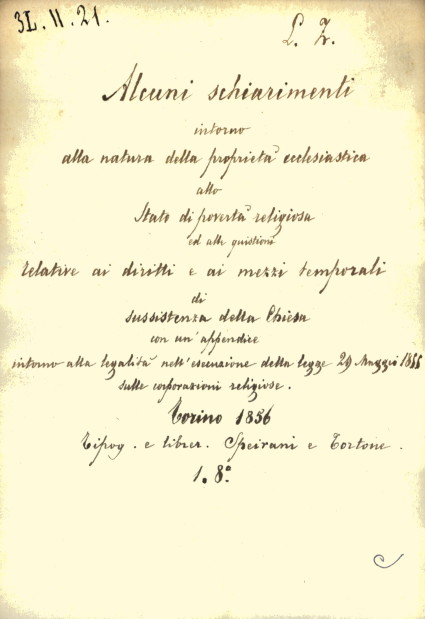 3L.II.21.
L. Z.
Alcuni schiarimenti
intorno
alla natura della proprietà ecclesiastica
allo
Stato di povertà religiosa
ed alle quistioni
relative ai diritti e ai mezzi temporali
di
sussistenza della Chiesa
con un' appendice
intorno alla legalità nell'esecuzione della legge 29 Maggio 1855
sulle corporazioni religiose.
Torino 1856
Tipog. e librer. Speirani e Tortone.
1. 8°